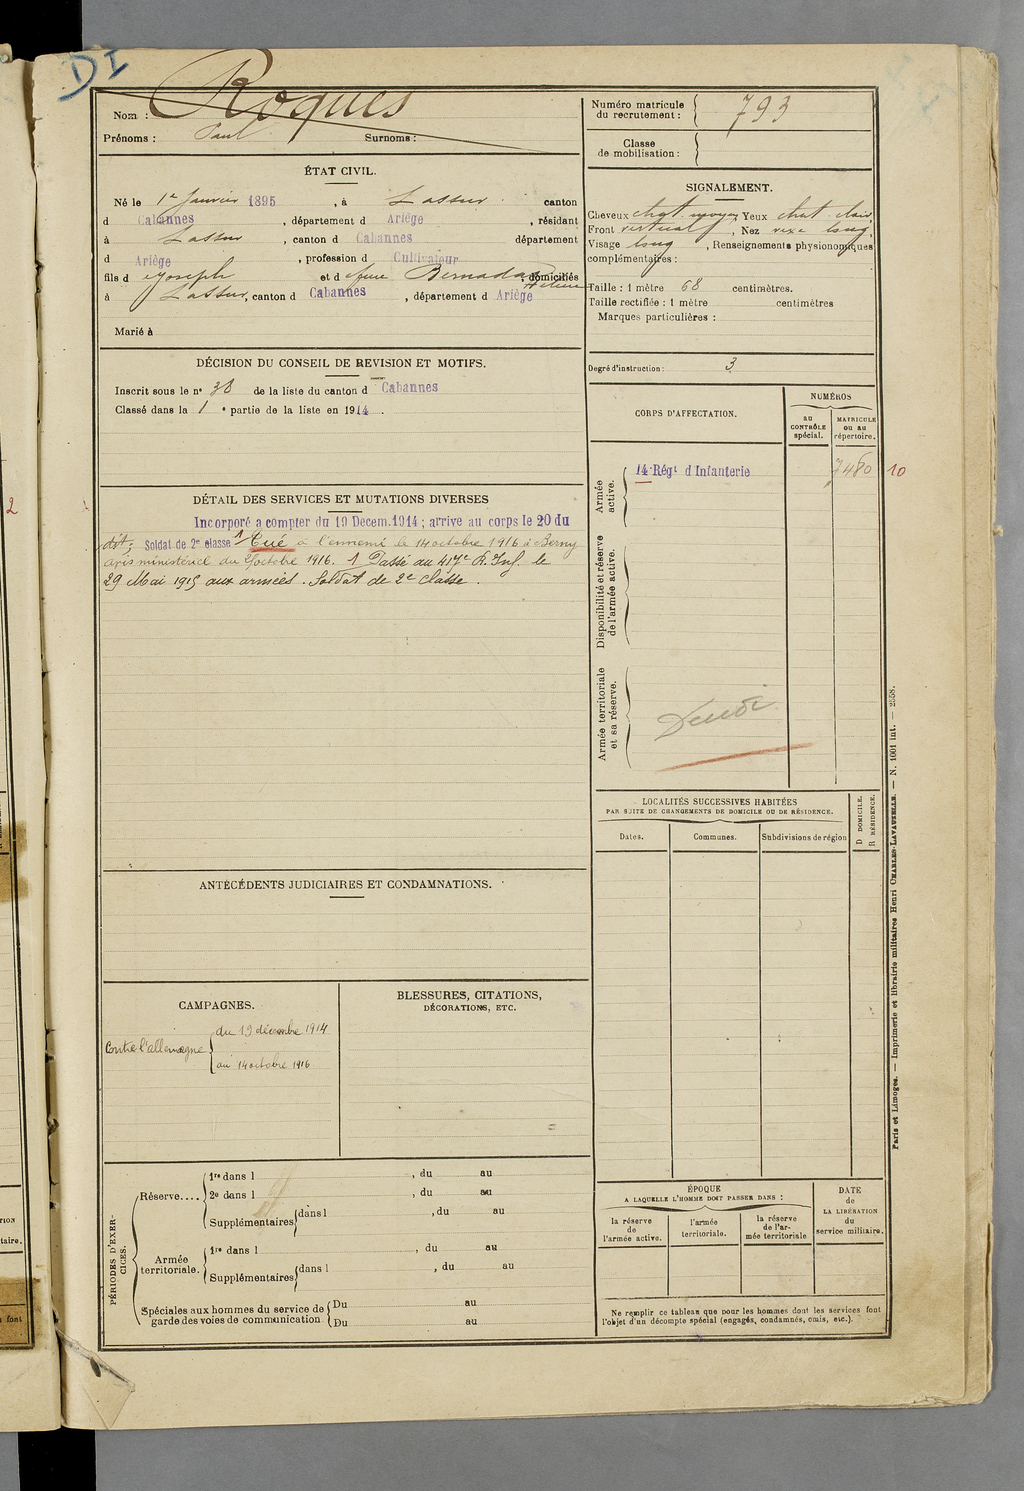 DI
Nom : Roques
Prénoms : Paul Surnoms :
Numéro matricule du recrutement : 793
Classe de mobilisation :
ÉTAT CIVIL.
Né le 1er Janvier 1895, à Lassur canton
d Cabannes, département d Ariège, résidant
à Lassur, canton d Cabannes département
d Ariège, profession d Cultivateur
fils d Joseph et d Bernadac, domiciliés
à Lassur, canton d Cabannes, département d Ariège
Marié à
SIGNALEMENT.
Cheveux chat moyen Yeux chat clair
Front vertical, Nez long,
Visage long, Renseignements physionomiques
complémentaires :
Taille : 1 mètre 68 centimètres.
Taille rectifiée : 1 mètre centimètres
Marques particulières :
Degré d'instruction : 3
DÉCISION DU CONSEIL DE REVISION ET MOTIFS.
Inscrit sous le n° 38 de la liste du canton d Cabannes
Classé dans la 1e partie de la liste en 1914.
CORPS D'AFFECTATION.
NUMÉROS
au CONTRÔLE spécial.
MATRICULE ou au répertoire.
Armée active.
14e Régt d'Infanterie 7480 10
Disponibilité et réserve de l'armée active.
Armée territoriale et sa réserve.
DÉTAIL DES SERVICES ET MUTATIONS DIVERSES
Incorporé a compter du 19 Decem.1914 ; arrive au corps le 20 du
dit; Soldat de 2e classe 1 Tué à l'ennemi le 14 octobre 1916 à Berny
avis ministériel du octobre 1916. 1 Passé au 417e R. Inf. le
29 Mai 1915 aux armées. Soldat de 2e classe.
LOCALITÉS SUCCESSIVES HABITÉES
PAR SUITE DE CHANGEMENTS DE DOMICILE OU DE RÉSIDENCE.
Dates. Communes. Subdivisions de région
D DOMICILE.
R RÉSIDENCE.
ANTÉCÉDENTS JUDICIAIRES ET CONDAMNATIONS.
CAMPAGNES.
Contre l'allemagne
du 19 décembre 1914
au 14 octobre 1916
BLESSURES, CITATIONS,
DÉCORATIONS, ETC.
PÉRIODES D'EXERCICES.
Réserve....
1re dans l , du au
2e dans l , du au
Supplémentaires dans l , du au
Armée territoriale.
1re dans l , du au
Supplémentaires dans l , du au
Spéciales aux hommes du service de garde des voies de communication
Du au
Du au
ÉPOQUE
A LAQUELLE L'HOMME DOIT PASSER DANS :
la réserve de l'armée active.
l'armée territoriale.
la réserve de l'armée territoriale
DATE de LA LIBÉRATION du service militaire.
Ne remplir ce tableau que pour les hommes dont les services font
l'objet d'un décompte spécial (engagés, condamnés, omis, etc.).
Paris et Limoges. — Imprimerie et librairie militaires Henri CHARLES-LAVAUZELLE. — N. 1001 int. — 2558.
2